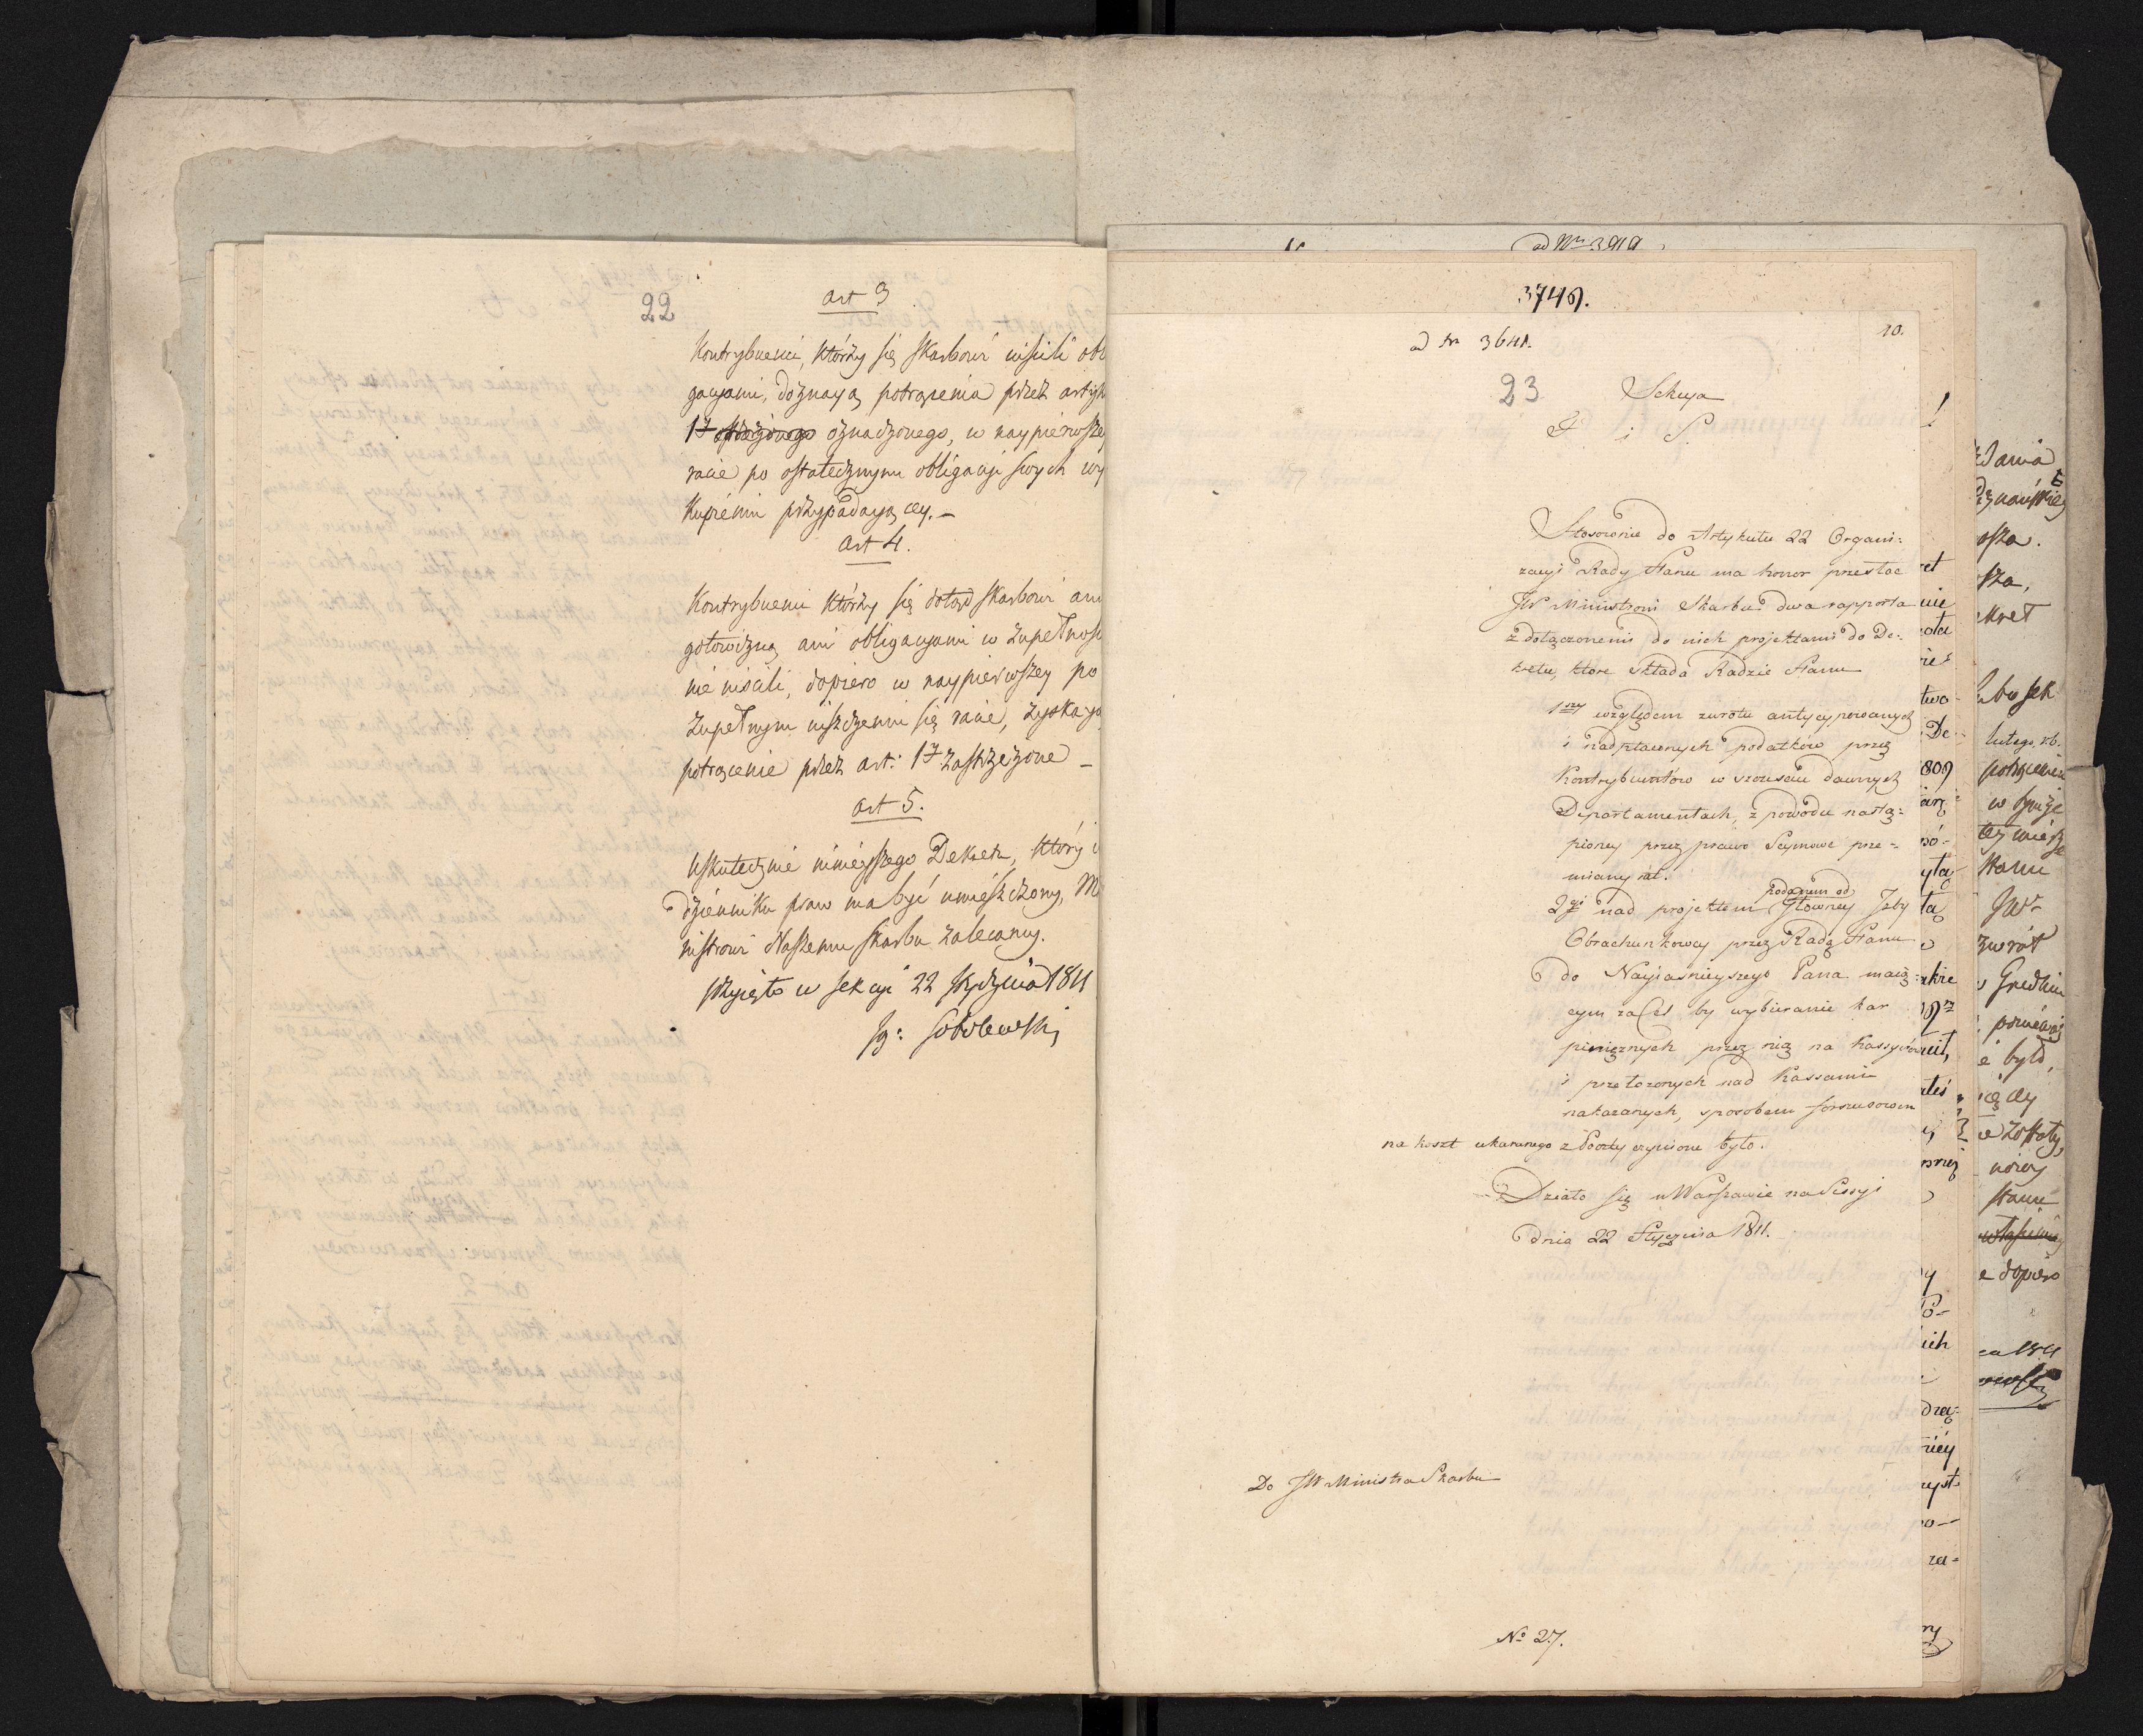 22
Art 3
Kontrybuenci, którzy się Skarbowi uiścili obl
gacyami, doznayą potrącenia przez artyk
17 oznaczonego, w naypierwszey
racie po ostatecznym obligacji swych wy
kupieniu przypadaiącey. –
Art 4.
Kontrybuenci którzy się dotąd Skarbowi ani
gotowizną ani obligacyami w zupełnośc
nie uiścili, dopiero w naypierwszey po
zupełnym uiszczeniu się racie, zyskayą
potrącenie przez art: 17 zastrzeżone –
Art 5.
Uskutecznie ninieyszego Dekretu, który i
dzienniku praw ma być umieszczony, Mi
nistrowi Naszemu Skarbu zalecamy.
przyięto w Sekcyi 22 Stycznia 1811
Sobolewski
ad Nr 3919
3749.
ad Nr 3641.
10.
23
Sekcya
S i S.
Stosownie do Artykułu 22 Organi:
zacyi Rady Stanu ma honor przesłać
JW Ministrowi Skarbu dwa rapporta
z dołączonemi do nich projektami do De:
kretu, które składa Radzie Stanu
1szy względem zwrotu antycypowanych
i nadpłaconych podatków przez
Kontrybuentów w sześciu dawnych
Departamentach, z powodu nastą:
pioney przez prawo Seymowe prze=
miany rat.
2gi nad projektem podanym od Główney Izby
Obrachunkowey przez Radę Stanu
do Nayiaśnieyszego Pana maią:
cym za Cel by wybieranie kar
pieniężnych przez nią na Kassyerów
i przełożonych nad Kassami
nakazanych, sposobem forszusowem
na koszt ukaranego z Poczty czynione było.
Działo się w Warszawie na Sessyi
dnia 22 Stycznia 1811.
Do JW Ministra Skarbu
No 27.